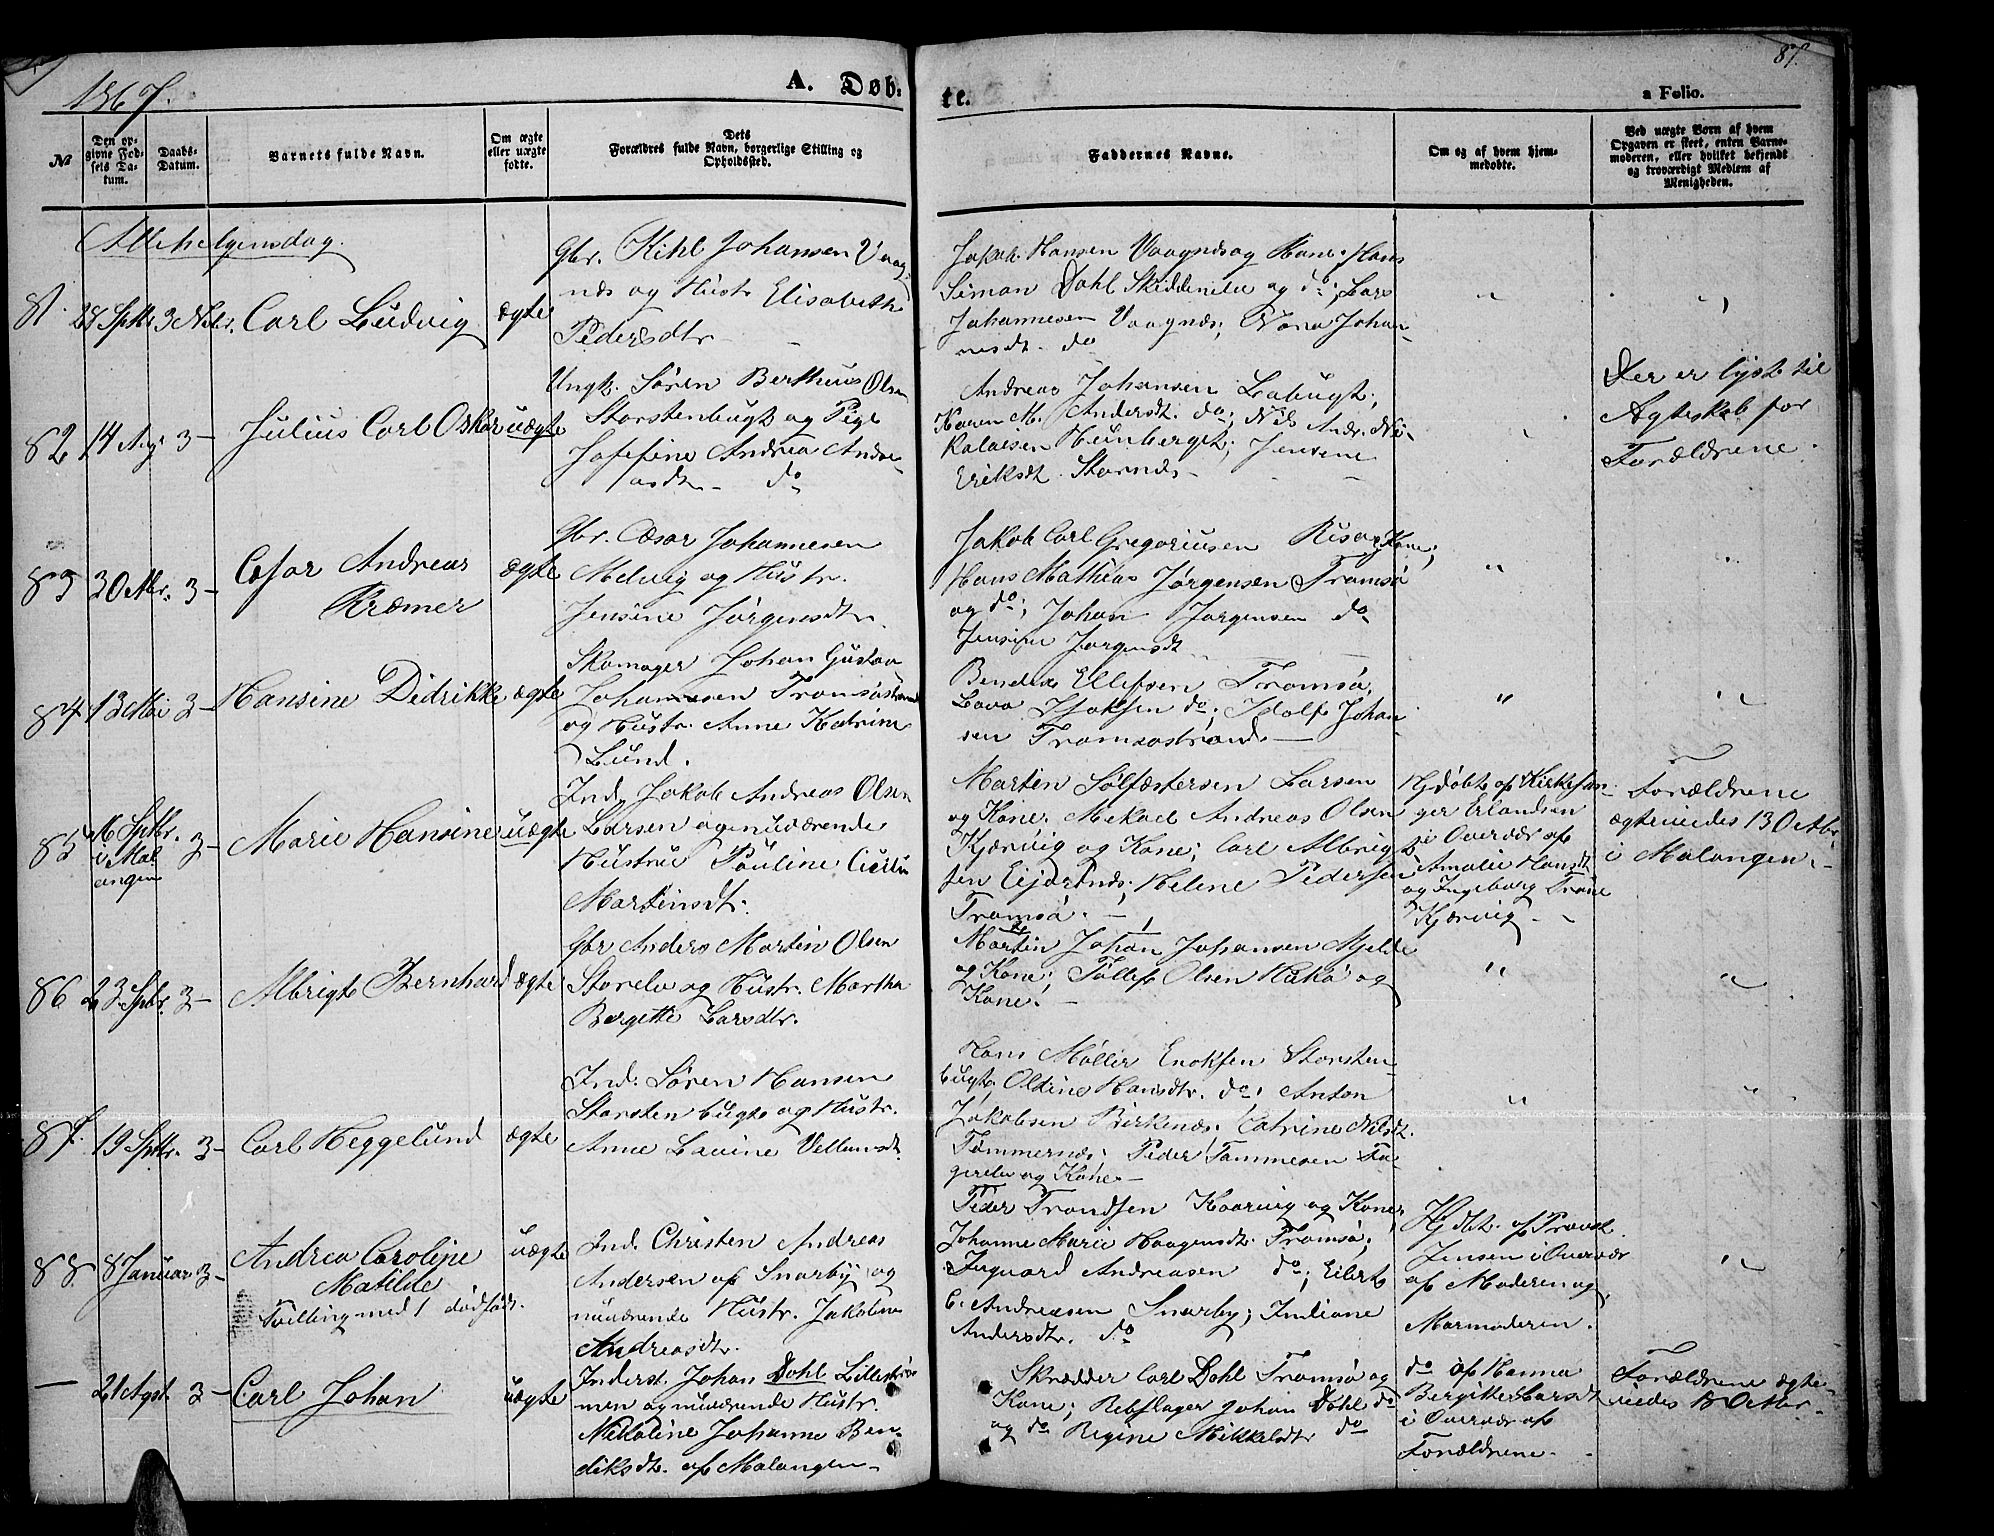 1867.
A. Døb-
te.
87.
a Folio.
№
Den op-
givne Fød-
sels Da-
tum.
Daabs-
Datum.
Barnets fulde Navn.
Om ægte
eller uægte
fødte.
Dets
Forældres fulde Navn, borgerlige Stilling og
Opholdssted.
Faddernes Navne.
Om og af hvem hjem-
medøbte.
Ved uægte Børn af hvem
Opgaven er skeet, enten Barne-
moderen, eller hvilket bekjendt
og troværdigt Medlem af
Menigheden.
Allehelgensdag.
81. 28 Sptbr. 3 Nvbr. Carl Ludvig ægte
Gbr. Kihl Johansen Vaag-
næs og Hustr Elisabeth
Pedersdtr
Jakob Hansen Vaagnæs og Kone; Hans
Simon Dahl Skiddenelv og do; Lars
Johannesen Vaagnæs; Nona Johan-
nesdt. do
"
"
82 14 Aug 3 - Julius Carl Oskar uægte
Ungk. Søren Bertheus Olsen
Storstenbugt og Pige
Josefine Andrea Andre-
asdt. do
Andreas Johansen Labugt;
Karen M. Andersdt. do; Nils Andr. Ni-
kolaisen Hunberget; Jensine
Eriksdt. Stornæs
"
Der er lyst til
Ægteskab for
Forældrene.
83 3 Octbr. 3 - Cesar Andreas
Kræmer
ægte
Gbr. Cæsar Johannesen
Melvig og Hustr.
Jensine Jørgensdtr.
Jakob Carl Gregoriusen Risø og Kone;
Hans Mathias Jørgensen Tromsø
og do; Johan Jørgensen do
Jensine Jørgensdt
"
"
84 13 Mai 3 - Hansine Didrikke ægte
Skomager Johan Gustav
Johannesen Tromsøstrand
og Hustr. Anne Katrine
Lund.
Bendix Ellefsen Tromsø,
Lava Isaksen do; Idolf Johan-
sen Tromsøstrand
"
"
85 16 Sptbr.
i Mal
angen
3 - Marie Hansine uægte
Ind. Jakob Andreas Olsen
Larsen og nuværende
Hustru Pauline Cicilia
Martinsdt.
Martin Sølfæstersen Larsen
og Kone; Mekael Andreas Olsen
Kjærvig og Kone; Carl Albrigt-
sen Ejdernæs; Helene Pedersen
Tromsø.
Hjdøbt af Kirkesan-
ger Erlandsen
i Overvær af
Amalie Hansdt
og Ingeborg Trane
Kjærvig
Forældrene
ægteviedes 13 Octbr
i Malangen.
86 23 Sptbr. 3 - Albrigt Bernhard ægte
Gbr Anders Martin Olsen
Storelv og Hustr. Martha
Bergette Larsdtr.
Martin Johan Johansen Mjelde
og Kone; Tollef Olsen Håkø og
Kone.
"
"
87. 19 Sptbr. 3 - Carl Heggelund ægte
Ind. Søren Hansen
Storstenbugt og Hustr.
Anne Lavine Vellumsdt.
Hans Møller Enoksen Storsten-
bugt; Oldine Hansdtr. do; Anton
Jakobsen Birkenæs; Catrine Nilsdt.
Tømmernæs; Peder Tommesen Fa-
gerelv og Kone.
"
"
88 8 Januar 3 - Andrea Caroline
Matilde
Tvilling med 1 dødfødt.
uægte
Ind. Christen Andreas
Andersen af Snarby og
nuværende Hustr. Jakobine
Andreasdtr.
Peder Trondsen Kaarvig og Kone;
Johanne Marie Haagensdt. Tromsø;
Inguard Andreasen do; Eilert
C. Andreasen Snarby; Indiane
Andersdtr. do
Hjdbt. af Provst
Jensen i Overvær
af Moderen og
Mormoderen.
"
— 21 Agst 3 - Carl Johan uægte
Inderst. Johan Dahl Lillestrøm-
men og nuværende Hustr.
Nikoline Johanne Ben-
diksdt. af Malangen
Skrædder Carl Dahl Tromsø og
Kone; Rebslager Johan Dahl do
og do Regine Mikkelsdtr do
do af Hanna
Bergitte Larsdt
i Overvær af
Forældrene.
Forældrene ægte-
viedes 18 Octbr